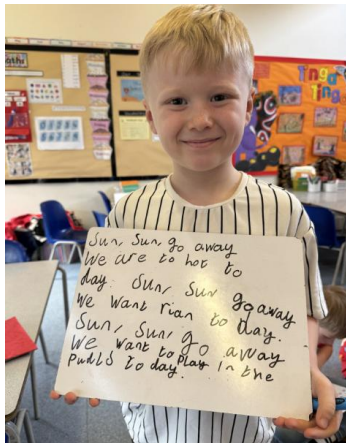 Tinga
Ting
Sun, Sun, go away
We are to hot to
day. Sun, Sun go away
We want rian to day.
Sun, Sun, go away
We want to play in the
pudls to day.